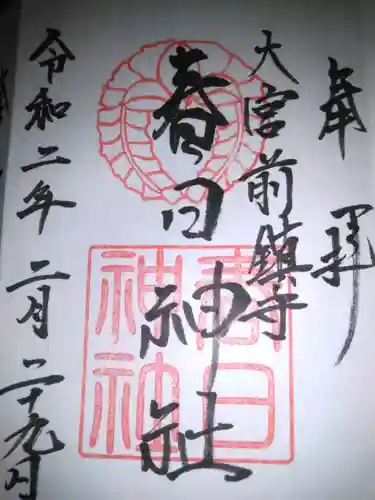 奉拝
大宮前鎮守
春日神社
令和二年二月二十九日
春日
神社